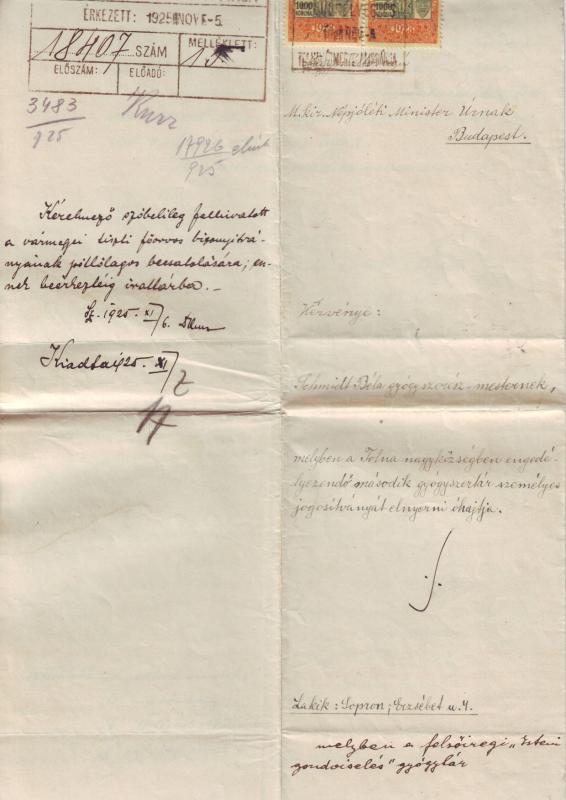 ÉRKEZETT: 1925 NOVE-5.
18407 SZÁM
MELLÉKLETT:
15
ELŐSZÁM:
ELŐADÓ:
3483
925
Kurz
17926
925
Kérelmező szóbelileg felhivatott
a vármegyei tiszti főorvos bizonyitvá-
nyának pótlólagos becsatolására; en-
nek beérkeztéig irattárba.-
1925. XI/6.
Kiadta 925. XI/7
1000
KORONA
1000
KORONA
M. kir. Népjóléti Minister Úrnak
Budapest.
Kérvénye:
Schmidt Béla gyógyszerész-mesternek,
melyben a Tolna nagyközségben engedé-
lyezendő második gyógyszertár személyes
jogosítványát elnyerni óhajtja.
Lakik: Sopron, Erzsébet u. 4.
melyben a felsőiregi „Isteni
gondviselés" gyógytár